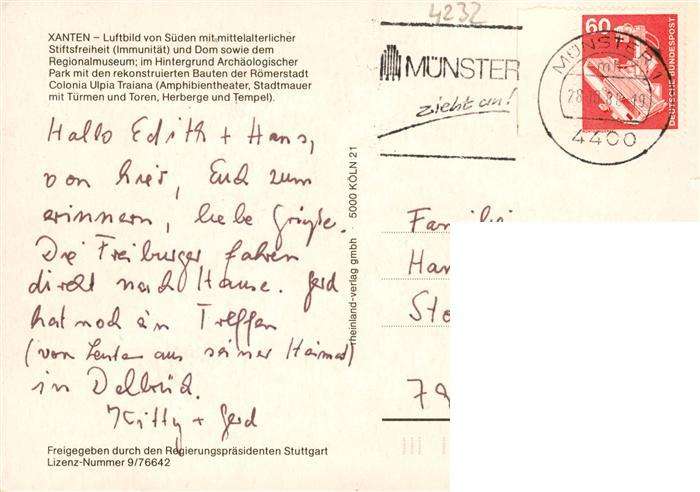 XANTEN – Luftbild von Süden mit mittelalterlicher
Stiftsfreiheit (Immunität) und Dom sowie dem
Regionalmuseum; im Hintergrund Archäologischer
Park mit den rekonstruierten Bauten der Römerstadt
Colonia Ulpia Traiana (Amphibientheater, Stadtmauer
mit Türmen und Toren, Herberge und Tempel).
Hallo Edith + Hans,
von hier, Euch zum
erinnern, liebe Grüße.
Die Freiburger fahren
direkt nach Hause. Gerd
hat noch ein Treffen
(von Leuten aus seiner Heimat)
in Delbrück.
Kitty + Gerd
Freigegeben durch den Regierungspräsidenten Stuttgart
Lizenz-Nummer 9/76642
rheinland-verlag gmbh · 5000 KÖLN 21
4232
MÜNSTER
zieht an!
MÜNSTER
4400
60
DEUTSCHE BUNDESPOST
Famili
Han
Sto
79